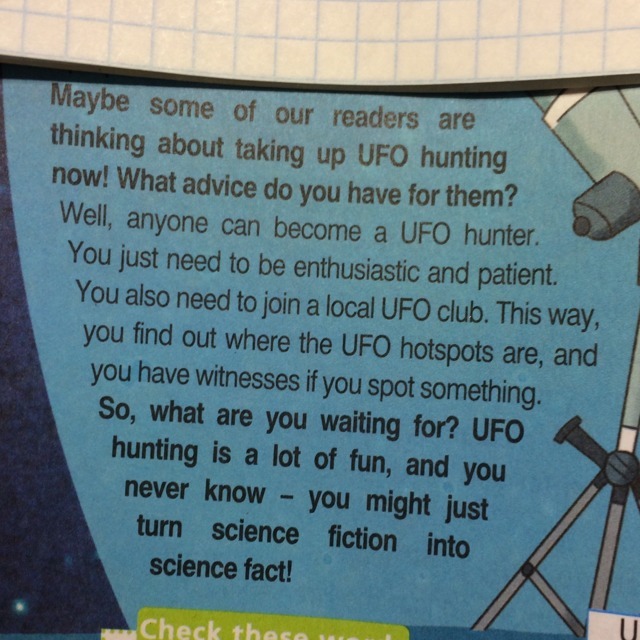 Maybe some of our readers are
thinking about taking up UFO hunting
now! What advice do you have for them?
Well, anyone can become a UFO hunter.
You just need to be enthusiastic and patient.
You also need to join a local UFO club. This way,
you find out where the UFO hotspots are, and
you have witnesses if you spot something.
So, what are you waiting for? UFO
hunting is a lot of fun, and you
never know – you might just
turn science fiction into
science fact!
Check these